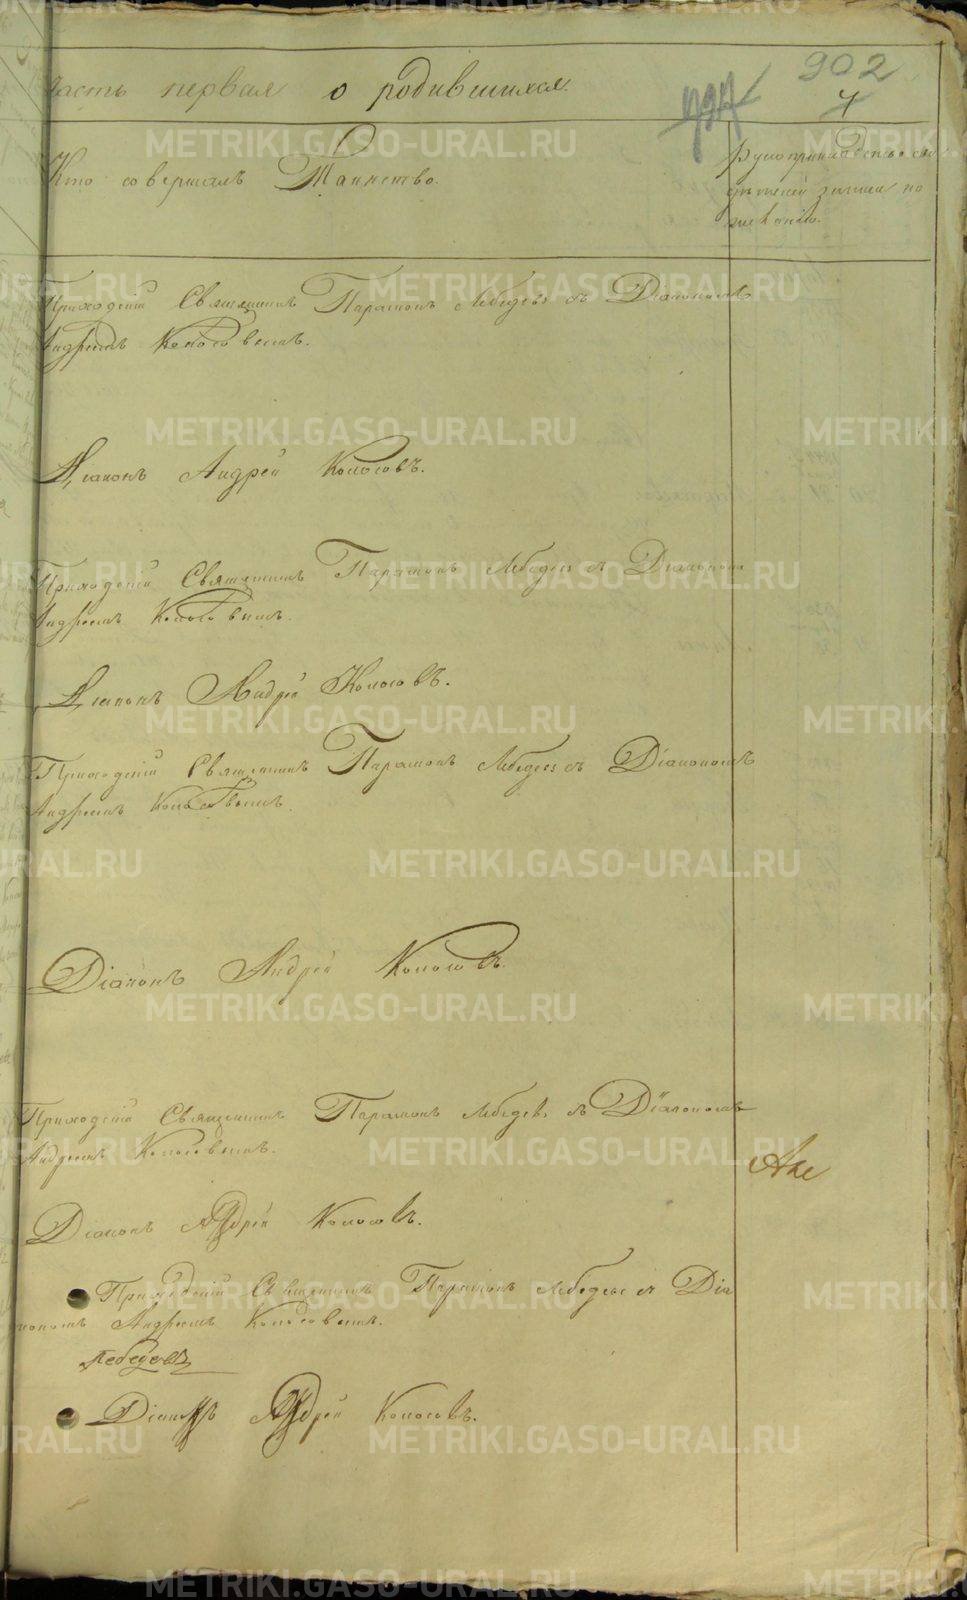 902
4
часть первая о родившихся
Кто совершалъ Таинство.
Рукоприкладство сви
дѣтелей записи по
желанію.
Приходскій Священникъ Парамонъ Лебедевъ съ Діакономъ
Андреемъ Колосовымъ.
Діаконъ Андрей Колосовъ.
Приходскій Священникъ Парамонъ Лебедевъ съ Діакономъ
Андреемъ Колосовымъ.
Діаконъ Андрей Колосовъ.
Приходскій Священникъ Парамонъ Лебедевъ съ Діакономъ
Андреемъ Колосовымъ.
Діаконъ Андрей Колосовъ.
Приходскій Священникъ Парамонъ Лебедевъ съ Діакономъ
Андреемъ Колосовымъ.
Діаконъ Андрей Колосовъ.
Приходскій Священникъ Парамонъ Лебедевъ съ Діа
кономъ Андреемъ Колосовымъ.
Лебедевъ
Діаконъ Андрей Колосовъ.
METRIKI.GASO-URAL.RU